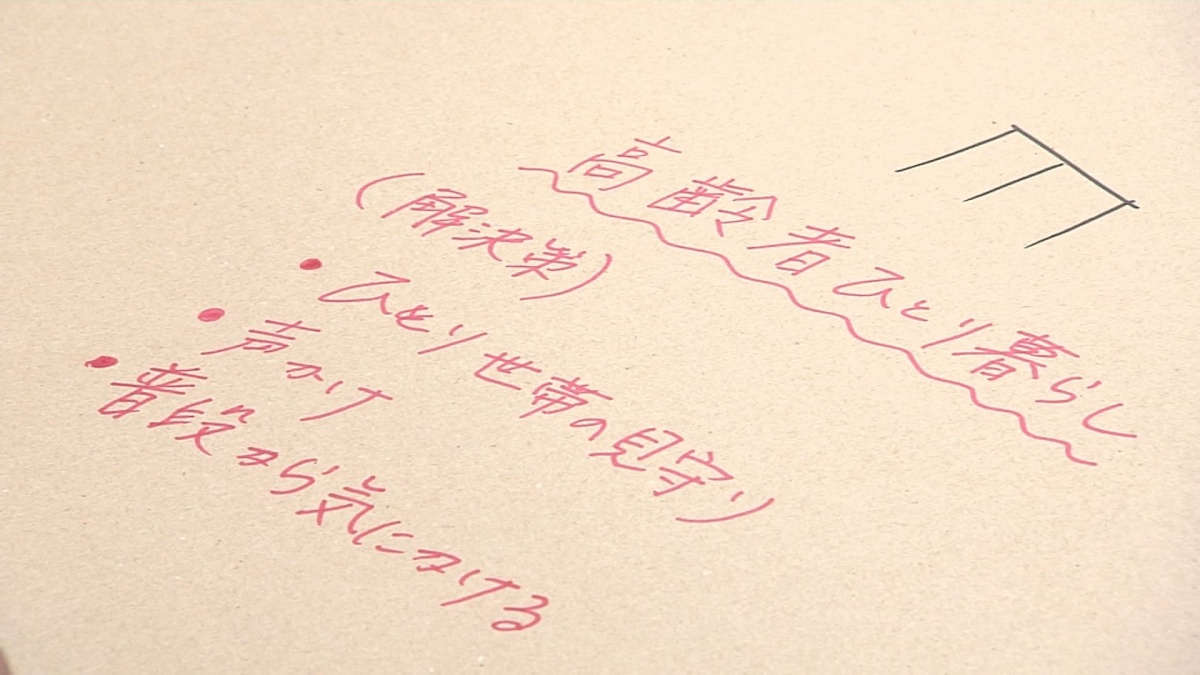 高齢者ひとり暮らし
(解決策)
・ひとり世帯の見守り
・声かけ
・普段から気にかける